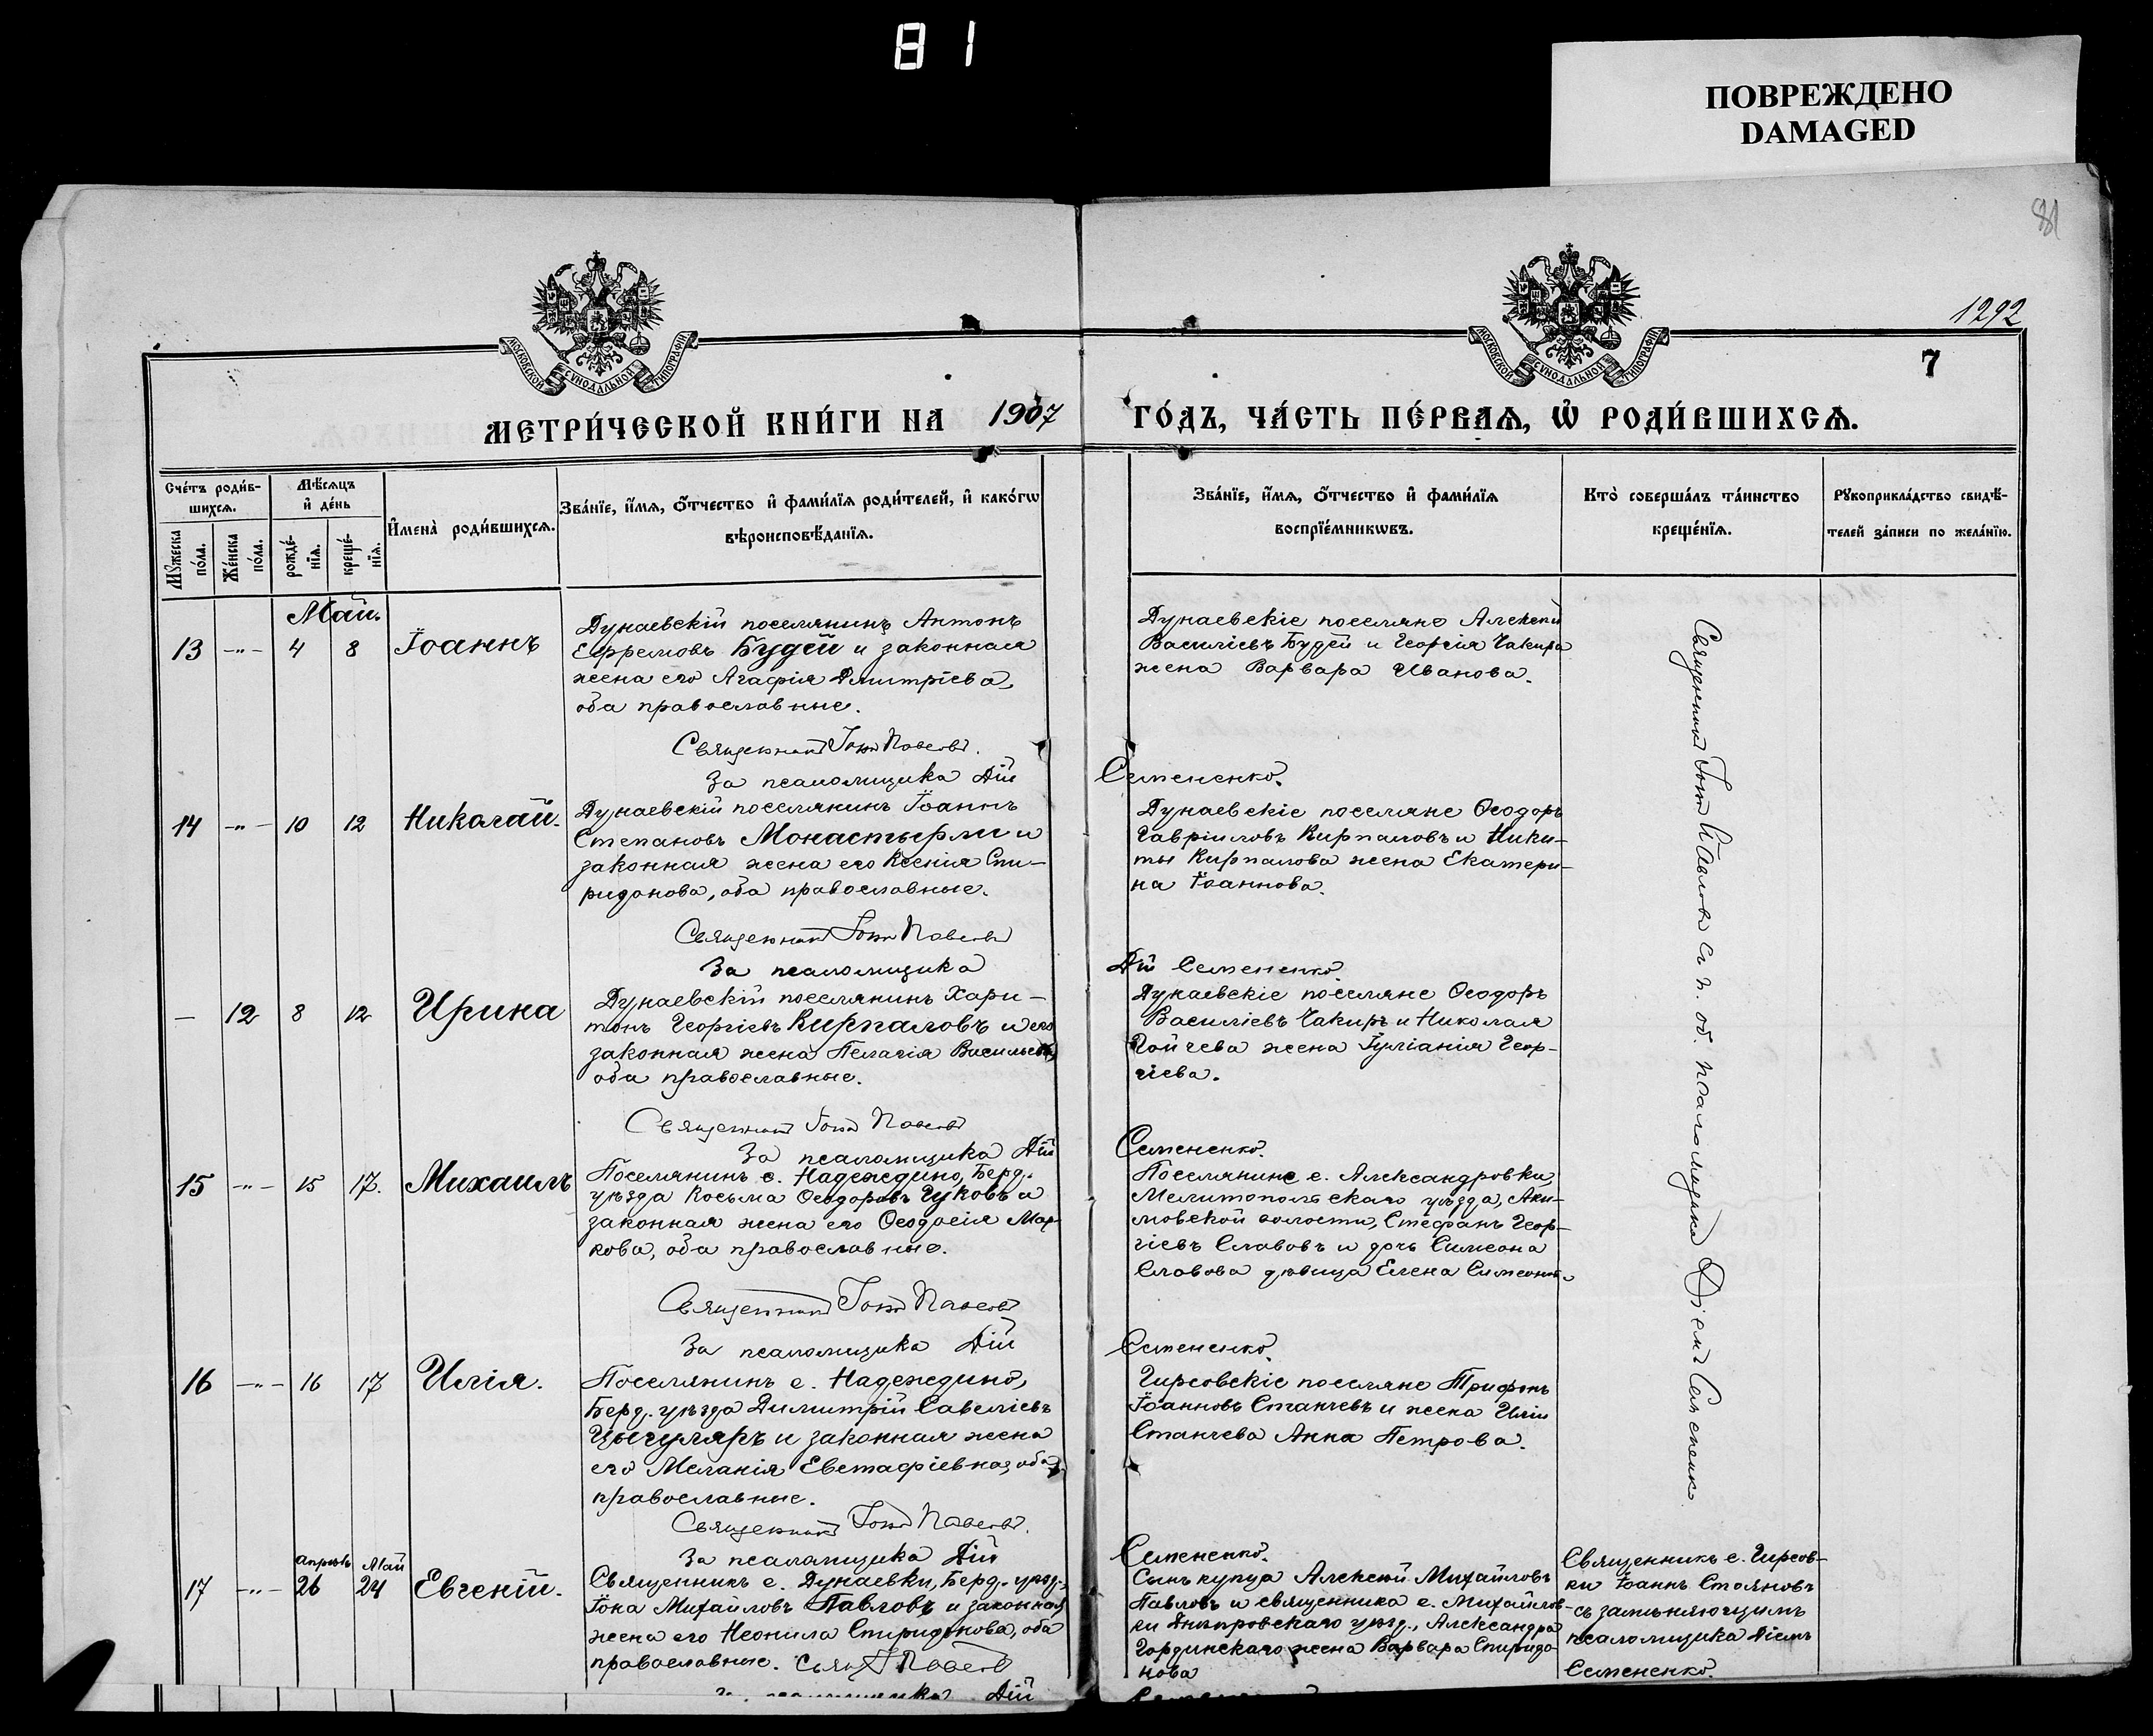 81
ПОВРЕЖДЕНО
DAMAGED
81
1292
7
МОСКОВСКОЙ СѴНОДАЛЬНОЙ ТИПОГРАФІИ
МОСКОВСКОЙ СѴНОДАЛЬНОЙ ТИПОГРАФІИ
МЕТРИ́ЧЕСКОЙ КНИ́ГИ НА 1907 ГО́ДЪ, ЧА́СТЬ ПЕ́РВАѦ, Ѡ҆ РОДИ́ВШИХСѦ.
Сче́тъ роди́в-
шихсѧ.
Мꙋ́жеска
по́ла.
Же́нска
по́ла.
Мѣ́сѧцъ
и҆ де́нь
рожде́-
нїѧ.
креще́-
нїѧ.
И҆мена̀ роди́вшихсѧ.
Зва́нїе, и҆́мѧ, ѻ҆́тчество и҆ фами́лїѧ роди́телей, и҆ како́гѡ
вѣроисповѣ́данїѧ.
Зва́нїе, и҆́мѧ, ѻ҆́тчество и҆ фами́лїѧ
воспрїе́мникѡвъ.
Кто̀ соверша́лъ та́инство
креще́нїѧ.
Рꙋкоприкла́дство свидѣ́-
телей за́писи по жела́нїю.
Май.
13 -"- 4 8 Іоаннъ
Дунаевскій поселянинъ Антонъ
Ефремовъ Будей и законная
жена его Агафія Дмитріева,
оба православные.
Священникъ Іона Павловъ.
За псаломщика Дій Семененко.
Дунаевскіе поселяне Алексѣй
Василіевъ Будей и Георгія Чакира
жена Варвара Иванова.
14 -"- 10 12 Николай.
Дунаевскій поселянинъ Іоаннъ
Степановъ Монастырли и
законная жена его Ксенія Спи-
ридонова, оба православные.
Священникъ Іона Павловъ
За псаломщика Дій Семененко.
Дунаевскіе поселяне Ѳеодоръ
Гавріиловъ Кирпаловъ и Ники-
ты Кирпалова жена Екатери-
на Іоаннова.
- 12 8 12 Ирина
Дунаевскій поселянинъ Хари-
тонъ Георгіевъ Кирпаловъ и его
законная жена Пелагія Васильева,
оба православные.
Священникъ Іона Павловъ
За псаломщика Дій Семененко.
Дунаевскіе поселяне Ѳеодоръ
Василіевъ Чакиръ и Николая
Гойчева жена Іуліанія Геор-
гіева.
15 -"- 15 17. Михаилъ
Поселянинъ с. Надеждино, Берд.
уѣзда Косьма Ѳеодоровъ Цуковъ и
законная жена его Ѳеодосія Мар-
кова, оба православные.
Священникъ Іона Павловъ
За псаломщика Дій Семененко.
Поселянинъ с. Александровки,
Мелитопольскаго уѣзда, Аки-
мовской волости, Стефанъ Геор-
гіевъ Славовъ и дочь Симеона
Славова дѣвица Елена Симеонов.
16 -"- 16 17 Илія.
Поселянинъ с. Надеждино,
Берд. уѣзда Димитрій Савеліевъ
Цыгуляръ и законная жена
его Меланія Евстафіевна, оба
православные.
Священникъ Іона Павловъ.
За псаломщика Дій Семененко.
Гирсовскіе поселяне Трифонъ
Іоанновъ Станчевъ и жена Иліи
Станчева Анна Петрова.
Апрѣль Май
17 -"- 26 24 Евгеній.
Священникъ с. Дунаевки, Берд. уѣзд.,
Іона Михайловъ Павловъ и законная
жена его Неонила Спиридонова, оба
православные. Свящ. І Павловъ
Дій
Сынъ купца Алексѣй Михайловъ
Павловъ и священника с. Михайлов-
ки Днѣпровскаго уѣзд., Александра
Гординскаго жена Варвара Спиридо-
нова
Священникъ с. Гирсов-
ки Іоаннъ Стояновъ
съ замѣняющимъ
псаломщика Діемъ
Семененко.
Священникъ Іона Павловъ съ и. об. псаломщика Діемъ Семененко